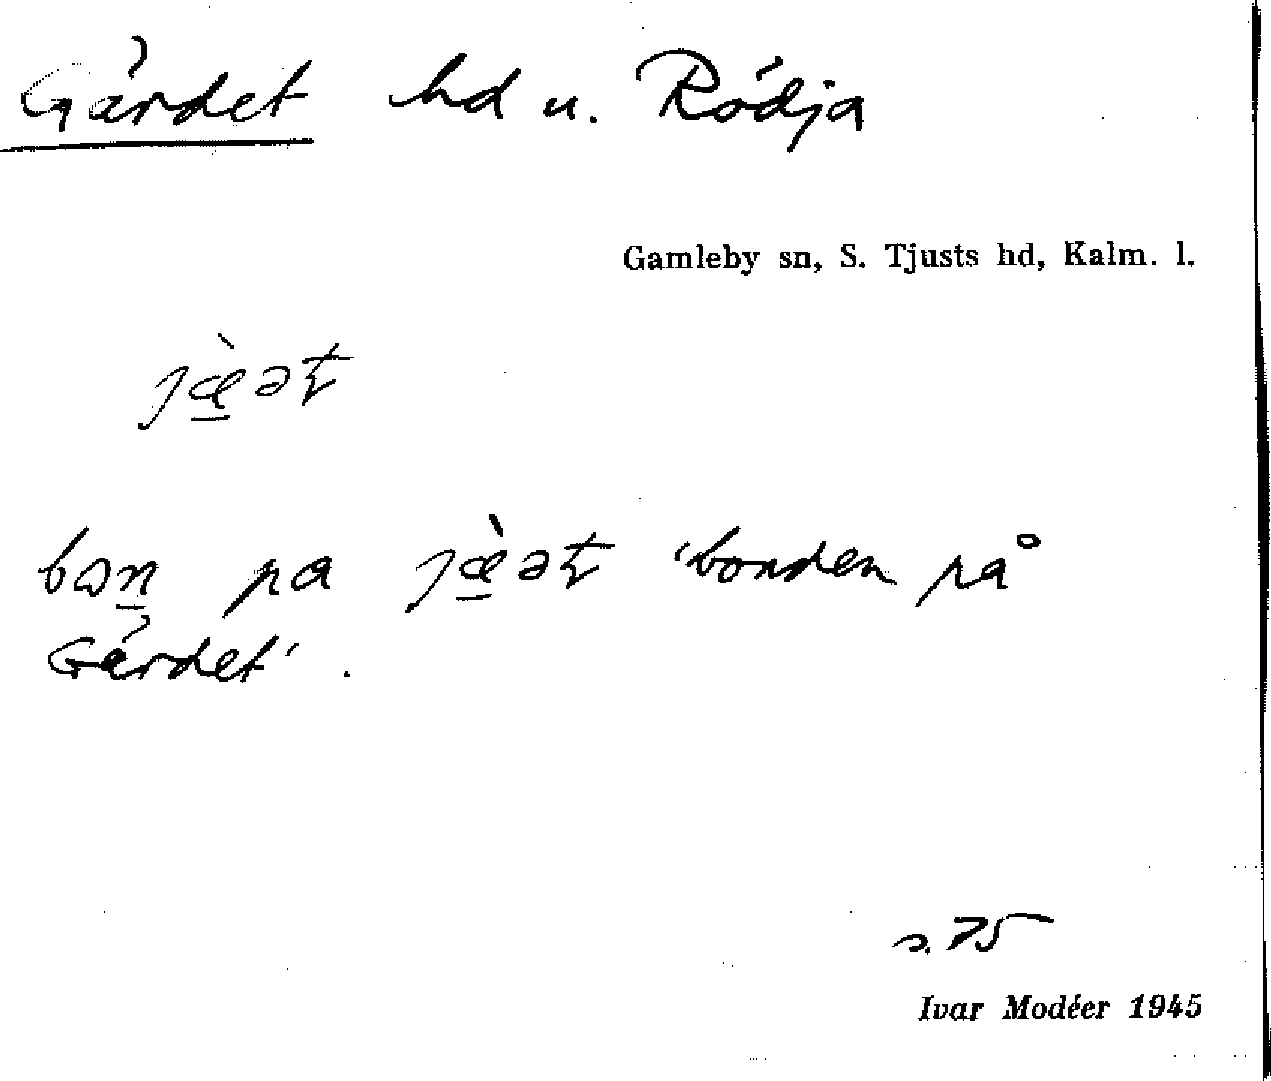 Gärdet hd u. Rödja
Gamleby sn, S. Tjusts hd, Kalm. l.
jæ̠̀ət
bɷn̠ pa jæ̠̀ət 'bonden på
Gärdet'.
s. 75
Ivar Modéer 1945